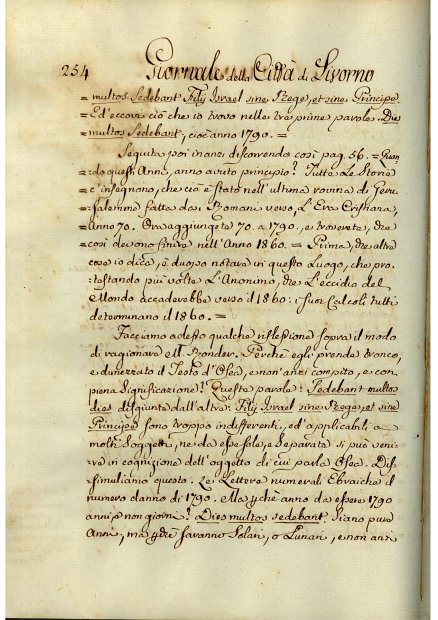 254 Giornale della Città di Livorno
= multos Sedebant Filij Israel sine Rege, et sine Principe.
= Ed'eccovi ciò che io trovo nelle tre prime parole. Dies
= multos Sedebant, cioè anni 1790. =
Seguita poi inanzi discorrendo così pag. 56. = Quan
= do questi Anni, anno avuto principio? Tutte Le Storie
= c'insegnano, che ciò è stato nell'ultima rovina di Geru
= salemme fatta dai Romani verso, L'Era Cristiana,
= Anno 70. Ora aggiungete 70. a 1790., e troverete, che
= così devono finire nell'Anno 1860. = Prima, che altre
cose io dica, è duopo notare in questo Luogo, che pro=
:testando più volte L'Anonimo, che L'eccidio del
Mondo accaderebbe verso il 1860: i suoi Calcoli tutti
determinano il 1860. =
Facciamo adesso qualche riflessione sopra il modo
di ragionare di M. Perché egli prende tronco,
e dimezzato il Testo d'Osea, e non'anzi compito, e con
piena Significazione? Queste parole: Sedebant multos
dies disgiunte dall'altre: Filij Israel sine Rege, et sine
Principe sono troppo indifferenti, ed'applicabili a
molti Soggetti, ne da esse sole, e Separate si può veni=
re in cognizione dell'oggetto di cui parla Osea. Dis=
simuliamo questo. Le Lettere numerali Ebraiche il
numero danno di 1790. Ma perchè anno da essere 1790
anni, e non giorni? Dies multos sedebant. Siano pure
Anni, ma perchè saranno Solari, o Lunari, e non anzi